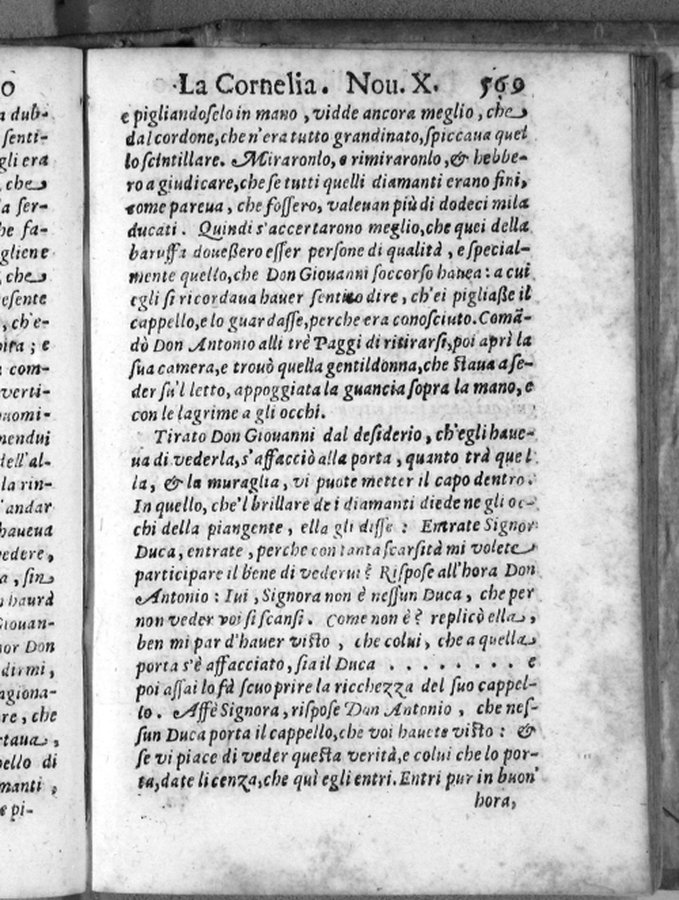 o
a dub-
senti-
gli era
, che
la ser-
he fa-
gliene
, che
esente
, ch'e-
; e
com-
verti-
uomi-
mendui
dell'al-
la rin-
'andar
haueua
vedere,
a, sin
haurà
Giouan-
nor Don
dirmi,
agiona-
re, che
rtaua,
pello di
manti,
e pi-
La Cornelia. Nou. X. 569
e pigliandoſelo in mano, vidde ancora meglio, che
dal cordone, che n'era tutto grandinato, ſpiccaua quel
lo ſcintillare. Miraronlo, e rimiraronlo, & hebbe-
ro a giudicare, che ſe tutti quelli diamanti erano fini,
come pareua, che foſſero, valeuan più di dodeci mila
ducati. Quindi s'accertarono meglio, che quei della
baruffa doueſſero eſſer perſone di qualità, e ſpecial-
mente quello, che Don Giouanni ſoccorſo hauea: a cui
egli ſi ricordaua hauer ſentito dire, ch'ei pigliaſſe il
cappello, e lo guardaſſe, perche era conoſciuto. Comã-
dò Don Antonio alli trè Paggi di ritirarſi, poi aprì la
ſua camera, e trouò quella gentildonna, che ſtaua a ſe-
der ſu'l letto, appoggiata la guancia ſopra la mano, e
con le lagrime a gli occhi.
Tirato Don Giouanni dal deſiderio, ch'egli haue-
ua di vederla, s'affacciò alla porta, quanto trà quel
la, & la muraglia, vi puote metter il capo dentro.
In quello, che'l brillare dei diamanti diede ne gli oc-
chi della piangente, ella gli diſſe: Entrate Signor
Duca, entrate, perche con tanta ſcarſità mi volete
participare il bene di vederui? Riſpoſe all'hora Don
Antonio: Iui, Signora non è neſſun Duca, che per
non veder voi ſi ſcanſi. Come non è? replicò ella,
ben mi par d'hauer viſto, che colui, che a quella
porta s'è affacciato, ſia il Duca . . . . . . . . e
poi aſſai lo fà ſcuoprire la ricchezza del ſuo cappel-
lo. Affè Signora, riſpoſe Don Antonio, che neſ-
ſun Duca porta il cappello, che voi hauete viſto: &
ſe vi piace di veder queſta verità, e colui che lo por-
ta, date licenza, che quì egli entri. Entri pur in buon'
hora,